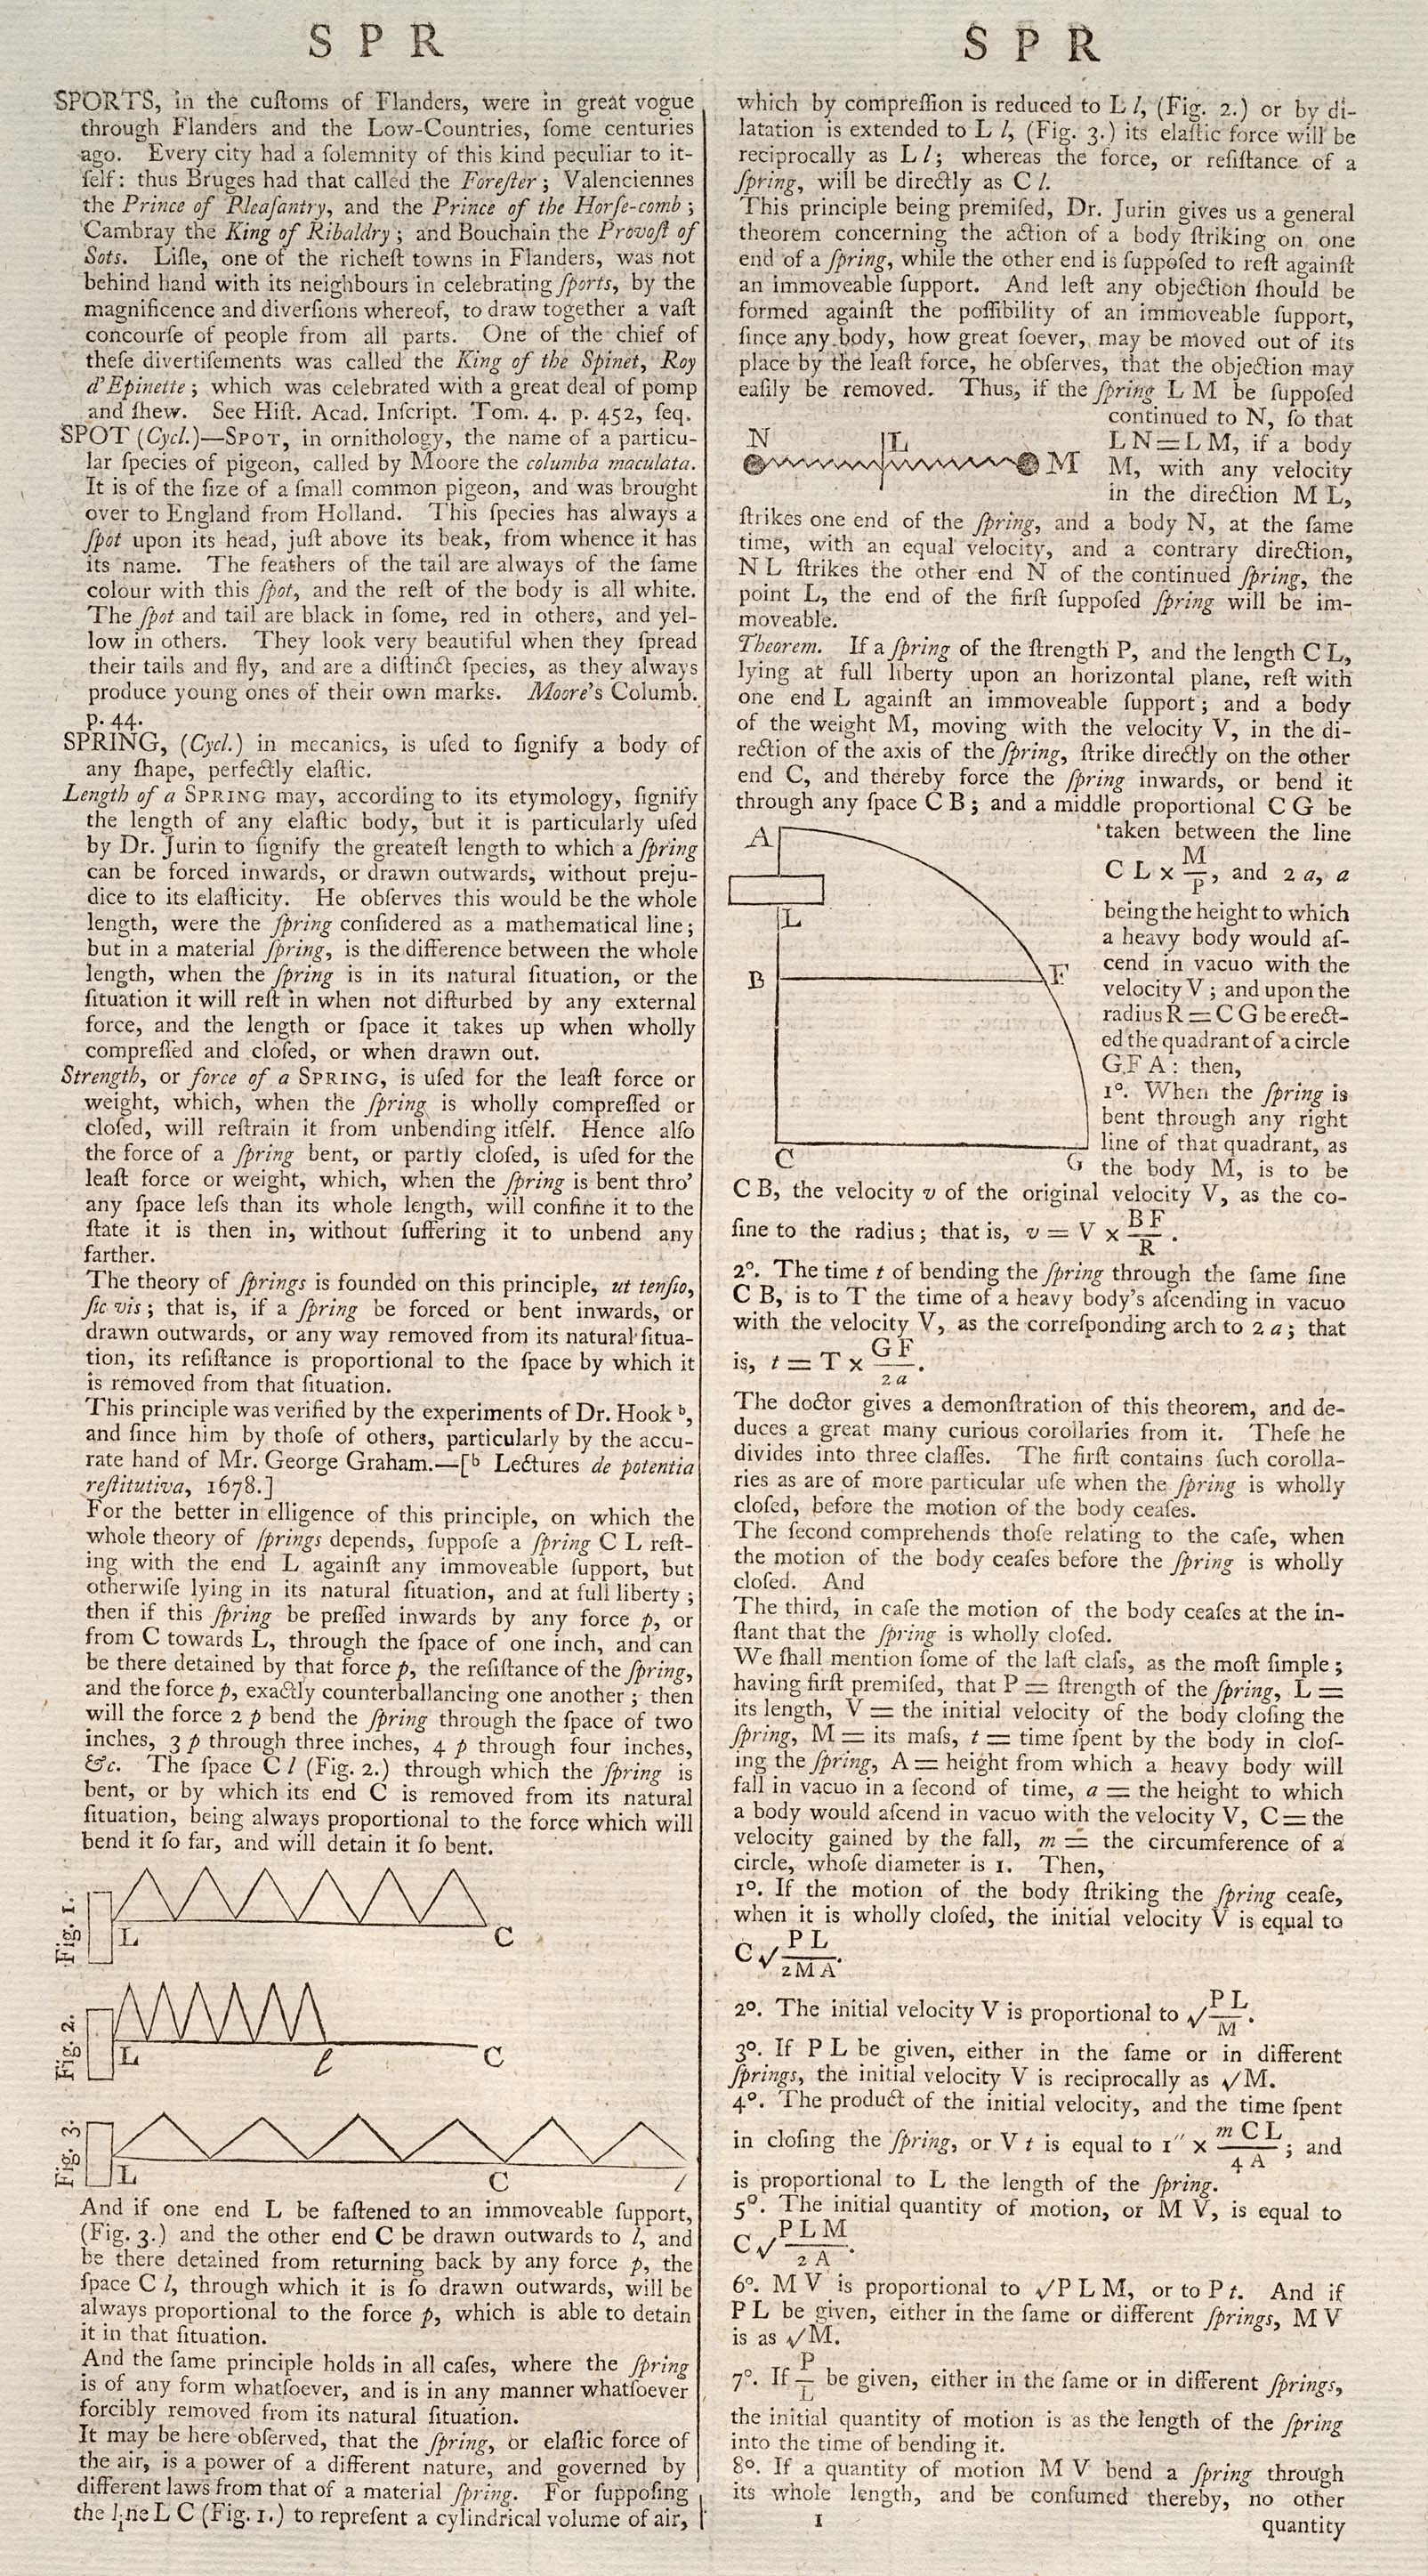 S P R
SPORTS, in the cuſtoms of Flanders, were in great vogue
through Flanders and the Low-Countries, ſome centuries
ago. Every city had a ſolemnity of this kind peculiar to it-
ſelf: thus Bruges had that called the Foreſter; Valenciennes
the Prince of Pleaſantry, and the Prince of the Horſe-comb;
Cambray the King of Ribaldry; and Bouchain the Provoſt of
Sots. Liſle, one of the richeſt towns in Flanders, was not
behind hand with its neighbours in celebrating ſports, by the
magnificence and diverſions whereof, to draw together a vaſt
concourſe of people from all parts. One of the chief of
theſe divertiſements was called the King of the Spinet, Roy
d'Epinette; which was celebrated with a great deal of pomp
and ſhew. See Hiſt. Acad. Inſcript. Tom. 4. p. 452, ſeq.
SPOT (Cycl.)—SPOT, in ornithology, the name of a particu-
lar ſpecies of pigeon, called by Moore the columba maculata.
It is of the ſize of a ſmall common pigeon, and was brought
over to England from Holland. This ſpecies has always a
ſpot upon its head, juſt above its beak, from whence it has
its name. The feathers of the tail are always of the ſame
colour with this ſpot, and the reſt of the body is all white.
The ſpot and tail are black in ſome, red in others, and yel-
low in others. They look very beautiful when they ſpread
their tails and fly, and are a diſtinct ſpecies, as they always
produce young ones of their own marks. Moore's Columb.
p. 44.
SPRING, (Cycl.) in mecanics, is uſed to ſignify a body of
any ſhape, perfectly elaſtic.
Length of a SPRING may, according to its etymology, ſignify
the length of any elaſtic body, but it is particularly uſed
by Dr. Jurin to ſignify the greateſt length to which a ſpring
can be forced inwards, or drawn outwards, without preju-
dice to its elaſticity. He obſerves this would be the whole
length, were the ſpring conſidered as a mathematical line;
but in a material ſpring, is the difference between the whole
length, when the ſpring is in its natural ſituation, or the
ſituation it will reſt in when not diſturbed by any external
force, and the length or ſpace it takes up when wholly
compreſſed and cloſed, or when drawn out.
Strength, or force of a SPRING, is uſed for the leaſt force or
weight, which, when the ſpring is wholly compreſſed or
cloſed, will reſtrain it from unbending itſelf. Hence alſo
the force of a ſpring bent, or partly cloſed, is uſed for the
leaſt force or weight, which, when the ſpring is bent thro'
any ſpace leſs than its whole length, will confine it to the
ſtate it is then in, without ſuffering it to unbend any
farther.
The theory of ſprings is founded on this principle, ut tenſio,
ſic vis; that is, if a ſpring be forced or bent inwards, or
drawn outwards, or any way removed from its natural ſitua-
tion, its reſiſtance is proportional to the ſpace by which it
is removed from that ſituation.
This principle was verified by the experiments of Dr. Hook ᵇ,
and ſince him by thoſe of others, particularly by the accu-
rate hand of Mr. George Graham.—[ᵇ Lectures de potentia
reſtitutiva, 1678.]
For the better in elligence of this principle, on which the
whole theory of ſprings depends, ſuppoſe a ſpring C L reſt-
ing with the end L againſt any immoveable ſupport, but
otherwiſe lying in its natural ſituation, and at full liberty;
then if this ſpring be preſſed inwards by any force p, or
from C towards L, through the ſpace of one inch, and can
be there detained by that force p, the reſiſtance of the ſpring,
and the force p, exactly counterballancing one another; then
will the force 2 p bend the ſpring through the ſpace of two
inches, 3 p through three inches, 4 p through four inches,
&c. The ſpace C l (Fig. 2.) through which the ſpring is
bent, or by which its end C is removed from its natural
ſituation, being always proportional to the force which will
bend it ſo far, and will detain it ſo bent.
Fig. 1. L C
Fig. 2. L l C
Fig. 3. L C l
And if one end L be faſtened to an immoveable ſupport,
(Fig. 3.) and the other end C be drawn outwards to l, and
be there detained from returning back by any force p, the
ſpace C l, through which it is ſo drawn outwards, will be
always proportional to the force p, which is able to detain
it in that ſituation.
And the ſame principle holds in all caſes, where the ſpring
is of any form whatſoever, and is in any manner whatſoever
forcibly removed from its natural ſituation.
It may be here obſerved, that the ſpring, or elaſtic force of
the air, is a power of a different nature, and governed by
different laws from that of a material ſpring. For ſuppoſing
the line L C (Fig. 1.) to repreſent a cylindrical volume of air,
S P R
which by compreſſion is reduced to L l, (Fig. 2.) or by di-
latation is extended to L l, (Fig. 3.) its elaſtic force will be
reciprocally as L l; whereas the force, or reſiſtance of a
ſpring, will be directly as C l.
This principle being premiſed, Dr. Jurin gives us a general
theorem concerning the action of a body ſtriking on one
end of a ſpring, while the other end is ſuppoſed to reſt againſt
an immoveable ſupport. And leſt any objection ſhould be
formed againſt the poſſibility of an immoveable ſupport,
ſince any body, how great ſoever, may be moved out of its
place by the leaſt force, he obſerves, that the objection may
eaſily be removed. Thus, if the ſpring L M be ſuppoſed
continued to N, ſo that
L N = L M, if a body
M, with any velocity
in the direction M L,
N L M
ſtrikes one end of the ſpring, and a body N, at the ſame
time, with an equal velocity, and a contrary direction,
N L ſtrikes the other end N of the continued ſpring, the
point L, the end of the firſt ſuppoſed ſpring will be im-
moveable.
Theorem. If a ſpring of the ſtrength P, and the length C L,
lying at full liberty upon an horizontal plane, reſt with
one end L againſt an immoveable ſupport; and a body
of the weight M, moving with the velocity V, in the di-
rection of the axis of the ſpring, ſtrike directly on the other
end C, and thereby force the ſpring inwards, or bend it
through any ſpace C B; and a middle proportional C G be
taken between the line
C L × M/P, and 2 a, a
being the height to which
a heavy body would aſ-
cend in vacuo with the
velocity V; and upon the
radius R = C G be erect-
ed the quadrant of a circle
G F A: then,
1°. When the ſpring is
bent through any right
line of that quadrant, as
the body M, is to be
A
L
B F
C G
C B, the velocity v of the original velocity V, as the co-
ſine to the radius; that is, v = V × B F/R.
2°. The time t of bending the ſpring through the ſame ſine
C B, is to T the time of a heavy body's aſcending in vacuo
with the velocity V, as the correſponding arch to 2 a; that
is, t = T × G F/2 a.
The doctor gives a demonſtration of this theorem, and de-
duces a great many curious corollaries from it. Theſe he
divides into three claſſes. The firſt contains ſuch corolla-
ries as are of more particular uſe when the ſpring is wholly
cloſed, before the motion of the body ceaſes.
The ſecond comprehends thoſe relating to the caſe, when
the motion of the body ceaſes before the ſpring is wholly
cloſed. And
The third, in caſe the motion of the body ceaſes at the in-
ſtant that the ſpring is wholly cloſed.
We ſhall mention ſome of the laſt claſs, as the moſt ſimple;
having firſt premiſed, that P = ſtrength of the ſpring, L =
its length, V = the initial velocity of the body cloſing the
ſpring, M = its maſs, t = time ſpent by the body in cloſ-
ing the ſpring, A = height from which a heavy body will
fall in vacuo in a ſecond of time, a = the height to which
a body would aſcend in vacuo with the velocity V, C = the
velocity gained by the fall, m = the circumference of a
circle, whoſe diameter is 1. Then,
1°. If the motion of the body ſtriking the ſpring ceaſe,
when it is wholly cloſed, the initial velocity V is equal to
C √ P L/2 M A.
2°. The initial velocity V is proportional to √ P L/M.
3°. If P L be given, either in the ſame or in different
ſprings, the initial velocity V is reciprocally as √M.
4°. The product of the initial velocity, and the time ſpent
in cloſing the ſpring, or V t is equal to 1″ × m C L/4 A; and
is proportional to L the length of the ſpring.
5°. The initial quantity of motion, or M V, is equal to
C √ P L M/2 A.
6°. M V is proportional to √P L M, or to P t. And if
P L be given, either in the ſame or different ſprings, M V
is as √M.
7°. If P/L be given, either in the ſame or in different ſprings,
the initial quantity of motion is as the length of the ſpring
into the time of bending it.
8°. If a quantity of motion M V bend a ſpring through
its whole length, and be conſumed thereby, no other
1
quantity